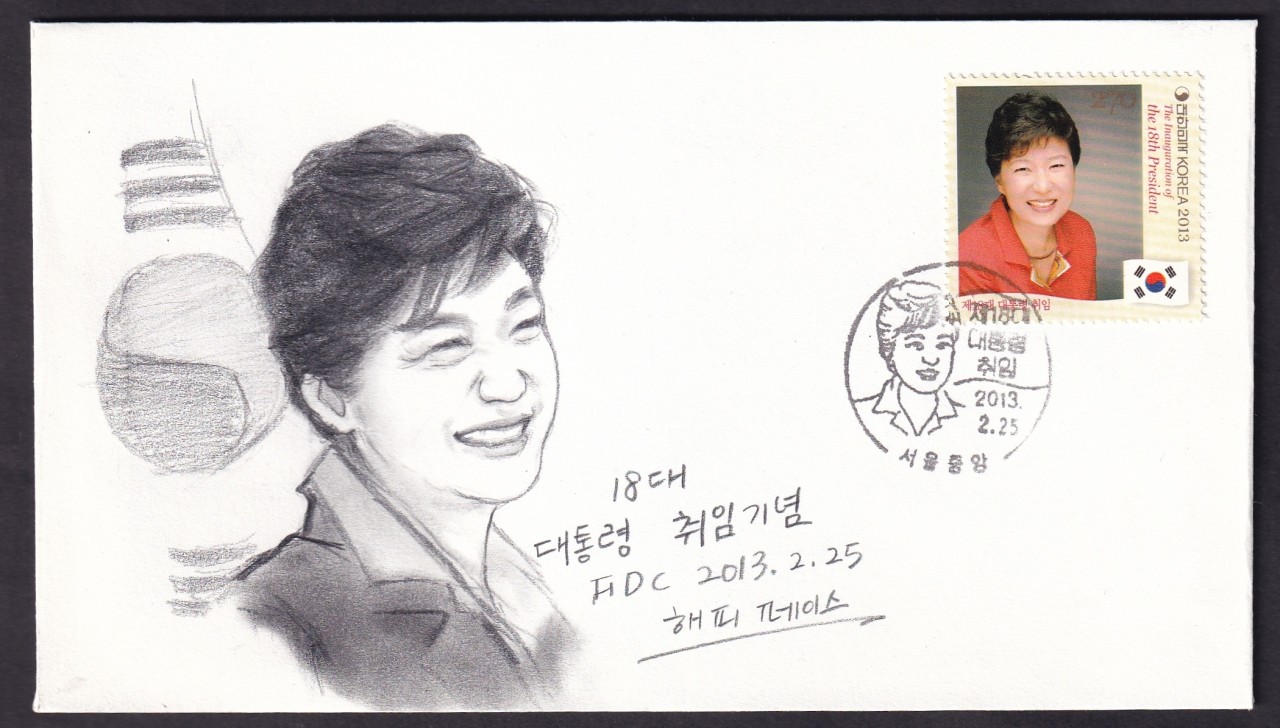 270
대한민국 KOREA 2013
The Inauguration of
the 18th President
제18대 대통령 취임
제18대
대통령
취임
2013.
2.25
서울중앙
18대
대통령 취임기념
FDC 2013.2.25
해피 페이스